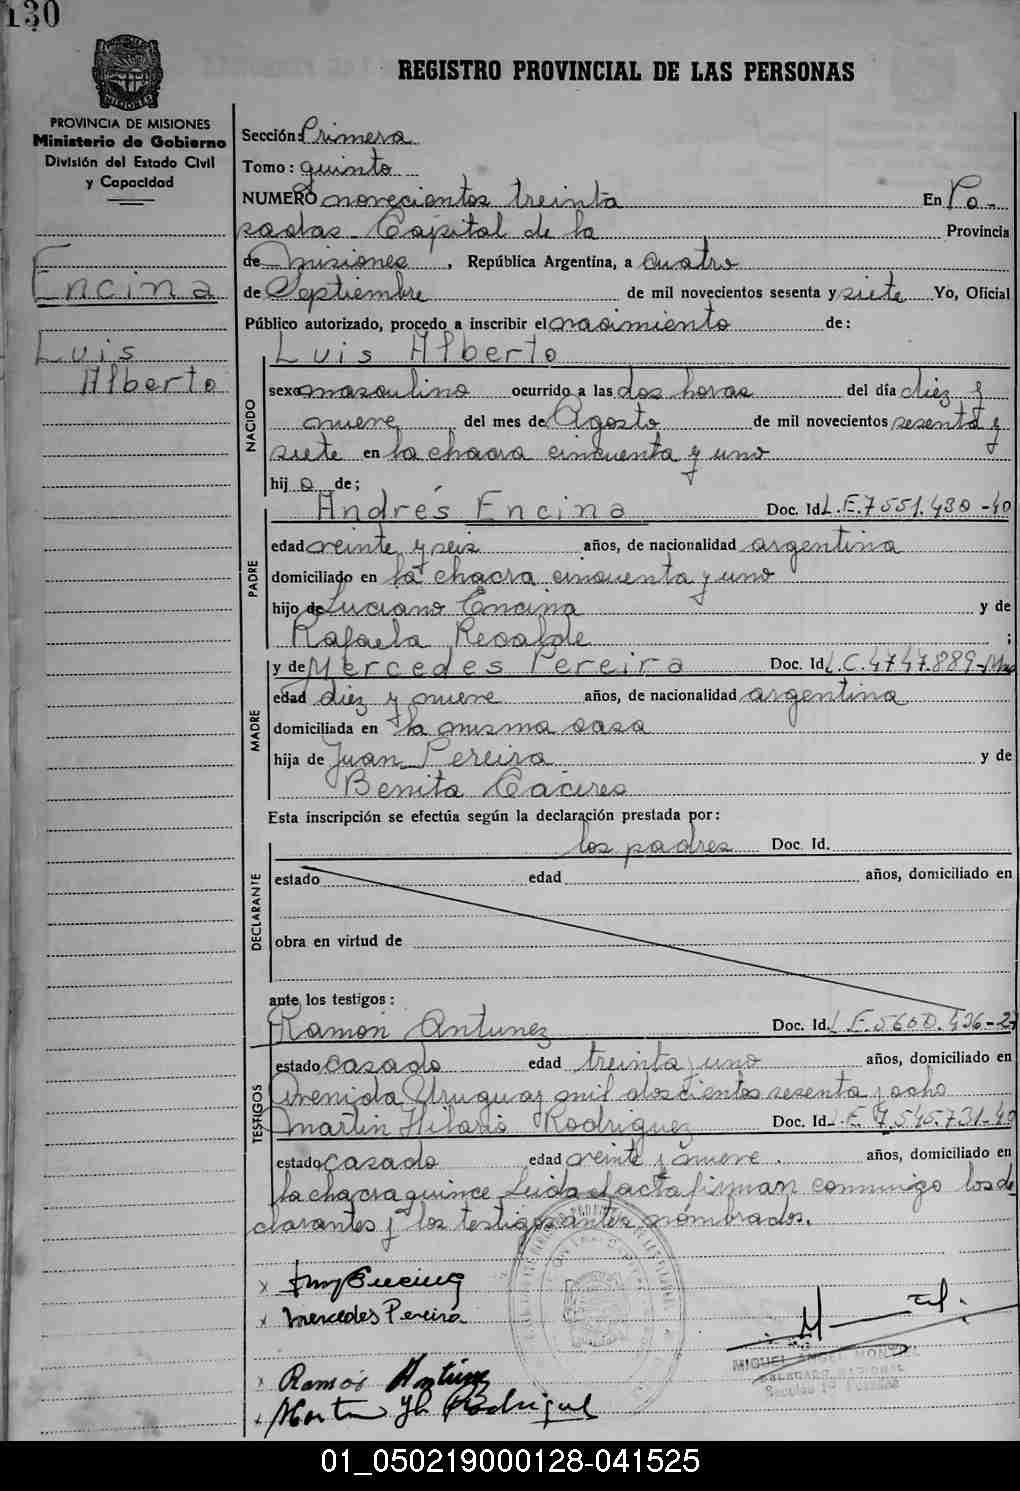 130
REGISTRO PROVINCIAL DE LAS PERSONAS
PROVINCIA DE MISIONES
Ministerio de Gobierno
División del Estado Civil
y Capacidad
Encina
Luis
Alberto
Sección: Primera
Tomo: quinto
NUMERO novecientos treinta En Po-
sadas - Capital de la Provincia
de Misiones, República Argentina, a cuatro
de Septiembre de mil novecientos sesenta y siete Yo, Oficial
Público autorizado, procedo a inscribir el nacimiento de:
Luis Alberto
NACIDO
sexo masculino ocurrido a las dos horas del día diez y
nueve del mes de Agosto de mil novecientos sesenta y
siete en la chacra cincuenta y uno
hijo de;
Andrés Encina Doc. Id. L.E.7551.430-40
PADRE
edad veinte y seis años, de nacionalidad argentina
domiciliado en la chacra cincuenta y uno
hijo de Luciano Encina y de
Rafaela Recalde ;
y de Mercedes Pereira Doc. Id. L.C.4747.889-
MADRE
edad diez y nueve años, de nacionalidad argentina
domiciliada en la misma casa
hija de Juan Pereira y de
Benita Cáceres
Esta inscripción se efectúa según la declaración prestada por:
los padres Doc. Id.
DECLARANTE
estado edad años, domiciliado en
obra en virtud de
ante los testigos:
Ramón Antunez Doc. Id. L.E.5600.436-2
TESTIGOS
estado casado edad treinta y uno años, domiciliado en
Avenida Uruguay mil doscientos sesenta y ocho
Martín Hilario Rodriguez Doc. Id. L.E.7.545.731-40
estado casado edad veinte y nueve. años, domiciliado en
la chacra quince Leida el acta firman conmigo los de-
clarantes y los testigos antes nombrados.
x Encina
x Mercedes Pereira
x Ramón Antunez
x Martin H Rodriguez
MIGUEL ANGEL
DELEGADO
01_050219000128-041525